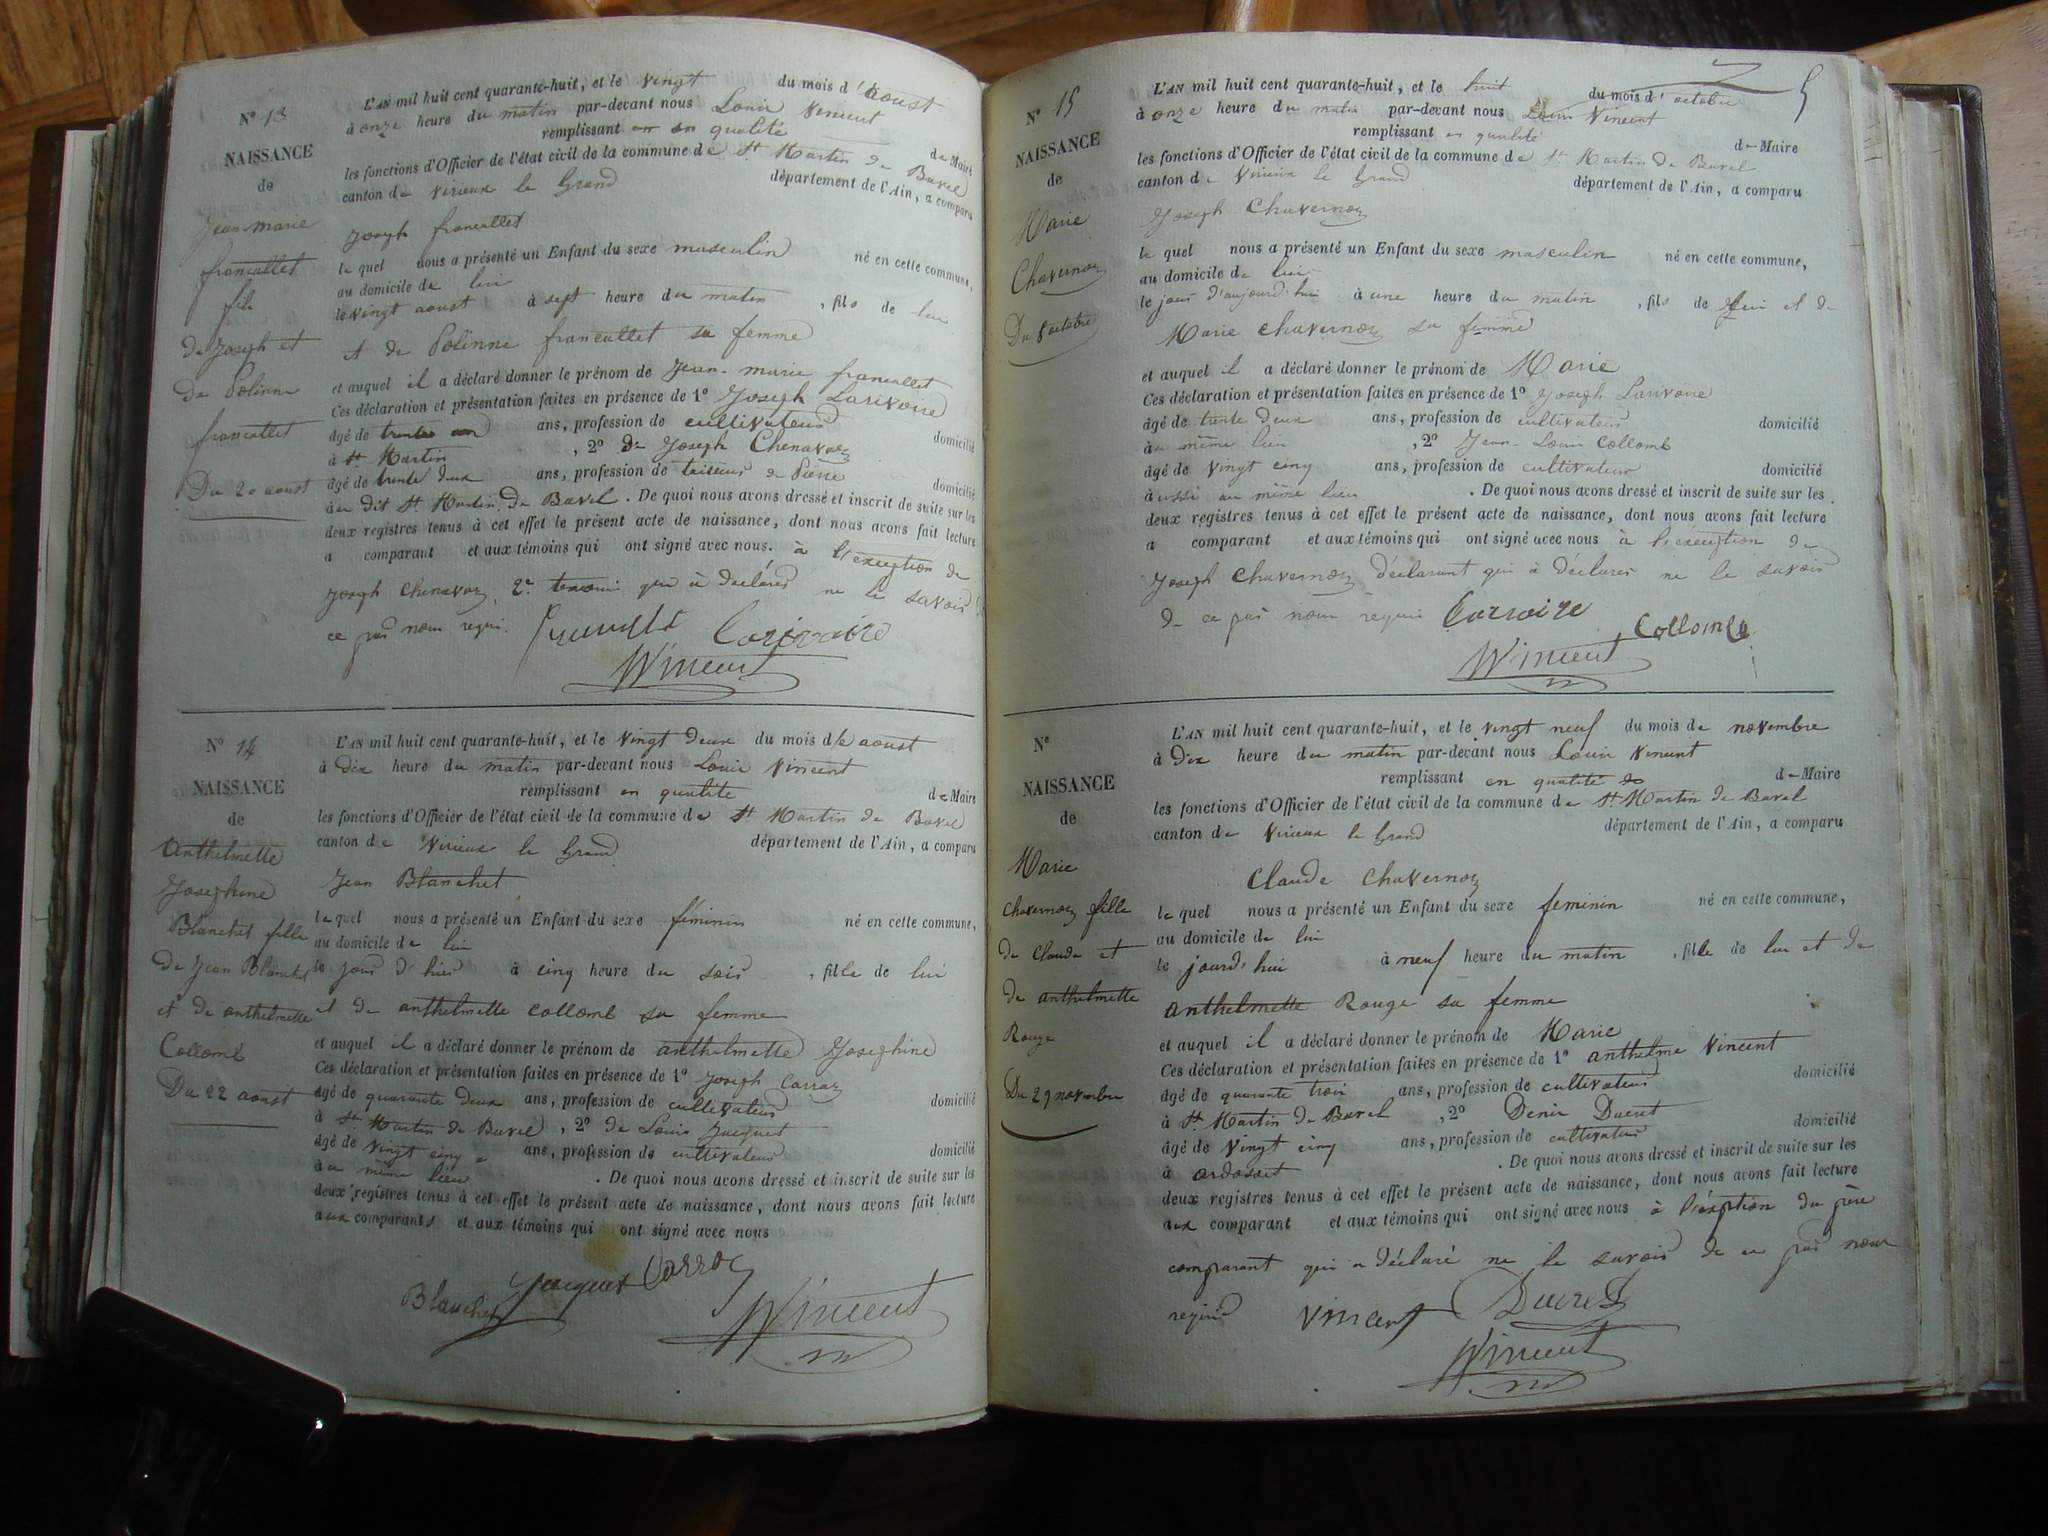 N° 13
NAISSANCE
de
Jean-marie
francallet
fils
de Joseph et
de Polinne
francallet
Du 20 aoust
L'AN mil huit cent quarante-huit, et le vingt du mois d'aoust
à onze heure du matin par-devant nous Louis Vincent
remplissant en qualité de Maire
les fonctions d'Officier de l'état civil de la commune de St Martin de Bavel
canton de Virieux le Grand département de l'Ain, a comparu
Joseph francallet
le quel nous a présenté un Enfant du sexe masculin né en cette commune,
au domicile de lui
le vingt aoust à sept heure du matin, fils de lui
et de Polinne francallet sa femme
et auquel il a déclaré donner le prénom de Jean-marie francallet
Ces déclaration et présentation faites en présence de 1° Joseph Larivoire
âgé de trente ans, profession de cultivateur domicilié
à St Martin, 2° de Joseph Chenavaz
âgé de trente deux ans, profession de tailleur de Pierre domicilié
à au dit St Martin de Bavel. De quoi nous avons dressé et inscrit de suite sur les
deux registres tenus à cet effet le présent acte de naissance, dont nous avons fait lecture
a comparant et aux témoins qui ont signé avec nous. à l'exception de
Joseph Chenavaz, 2e temoin qui à déclarer ne le savoir
ce par nous requi. Larivoire
Vincent
N° 14
NAISSANCE
de
anthelmette
Josephine
Blanchet fille
de Jean Blanchet
et de anthelmette
Collomb
Du 22 aoust
L'AN mil huit cent quarante-huit, et le vingt deux du mois de aoust
à dix heure du matin par-devant nous Louis Vincent
remplissant en qualité de Maire
les fonctions d'Officier de l'état civil de la commune de St Martin de Bavel
canton de Virieux le Grand département de l'Ain, a comparu
Jean Blanchet
le quel nous a présenté un Enfant du sexe féminin né en cette commune,
au domicile de lui
le jour d'hier à cinq heure du soir, fille de lui
et de anthelmette collomb sa femme
et auquel il a déclaré donner le prénom de anthelmette Josephine
Ces déclaration et présentation faites en présence de 1° Joseph Carraz
âgé de quarante deux ans, profession de cultivateur domicilié
à St Martin de Bavel, 2° de Louis Jacquet
âgé de vingt cinq ans, profession de cultivateur domicilié
à au même lieu. De quoi nous avons dressé et inscrit de suite sur les
deux registres tenus à cet effet le présent acte de naissance, dont nous avons fait lecture
aux comparants et aux témoins qui ont signé avec nous
Blanchet Jacquet Carraz
Vincent
5
N° 15
NAISSANCE
de
Marie
Chavernoz
Du 8 octobre
L'AN mil huit cent quarante-huit, et le huit du mois d'octobre
à onze heure du matin par-devant nous Louis Vincent
remplissant en qualité de Maire
les fonctions d'Officier de l'état civil de la commune de St Martin de Bavel
canton de Virieux le Grand département de l'Ain, a comparu
Joseph Chavernoz
le quel nous a présenté un Enfant du sexe masculin né en cette commune,
au domicile de lui
le jour d'aujourd'hui à une heure du matin, fils de lui et de
Marie Chavernoz sa femme
et auquel il a déclaré donner le prénom de Marie
Ces déclaration et présentation faites en présence de 1° Joseph Larivoire
âgé de trente deux ans, profession de cultivateur domicilié
à au même lieu, 2° Jean-Louis Collomb
âgé de vingt cinq ans, profession de cultivateur domicilié
à aussi au même lieu. De quoi nous avons dressé et inscrit de suite sur les
deux registres tenus à cet effet le présent acte de naissance, dont nous avons fait lecture
a comparant et aux témoins qui ont signé avec nous à l'exception de
Joseph Chavernoz déclarant qui à déclarer ne le savoir
de ce par nous requis Larivoire Collomb
Vincent
N°
NAISSANCE
de
Marie
Chavernoz fille
de Claude et
de anthelmette
Rouge
Du 29 novembre
L'AN mil huit cent quarante-huit, et le vingt neuf du mois de novembre
à dix heure du matin par-devant nous Louis Vincent
remplissant en qualité de Maire
les fonctions d'Officier de l'état civil de la commune de St Martin de Bavel
canton de Virieux le Grand département de l'Ain, a comparu
Claude Chavernoz
le quel nous a présenté un Enfant du sexe feminin né en cette commune,
au domicile de lui
le jourd'hui à neuf heure du matin, fille de lui et de
anthelmette Rouge sa femme
et auquel il a déclaré donner le prénom de Marie
Ces déclaration et présentation faites en présence de 1° anthelme Vincent
âgé de quarante trois ans, profession de cultivateur domicilié
à St Martin de Bavel, 2° Denis Ducret
âgé de vingt cinq ans, profession de cultivateur domicilié
à ardosset. De quoi nous avons dressé et inscrit de suite sur les
deux registres tenus à cet effet le présent acte de naissance, dont nous avons fait lecture
aux comparant et aux témoins qui ont signé avec nous à l'exption du père
comparant qui a déclaré ne le savoir de ce par nous
requis Vincent Ducret
Vincent